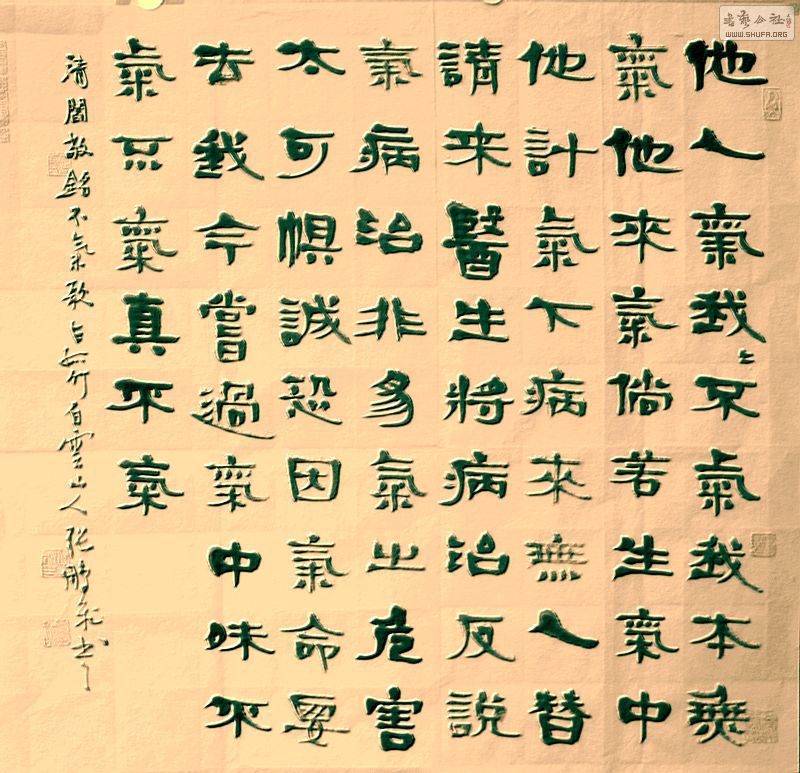 他人氣我〻不氣我本無
氣他來氣倘若生氣中
他計氣下病來無人替
請来醫生將病治反說
氣病治非易氣之危害
太可惧誠恐因氣命
去我今嘗過氣中味不
氣不氣真不氣
清閻敬銘不氣歌 白雲山人張鵬飛书
書藝公社
WWW.SHUFA.ORG